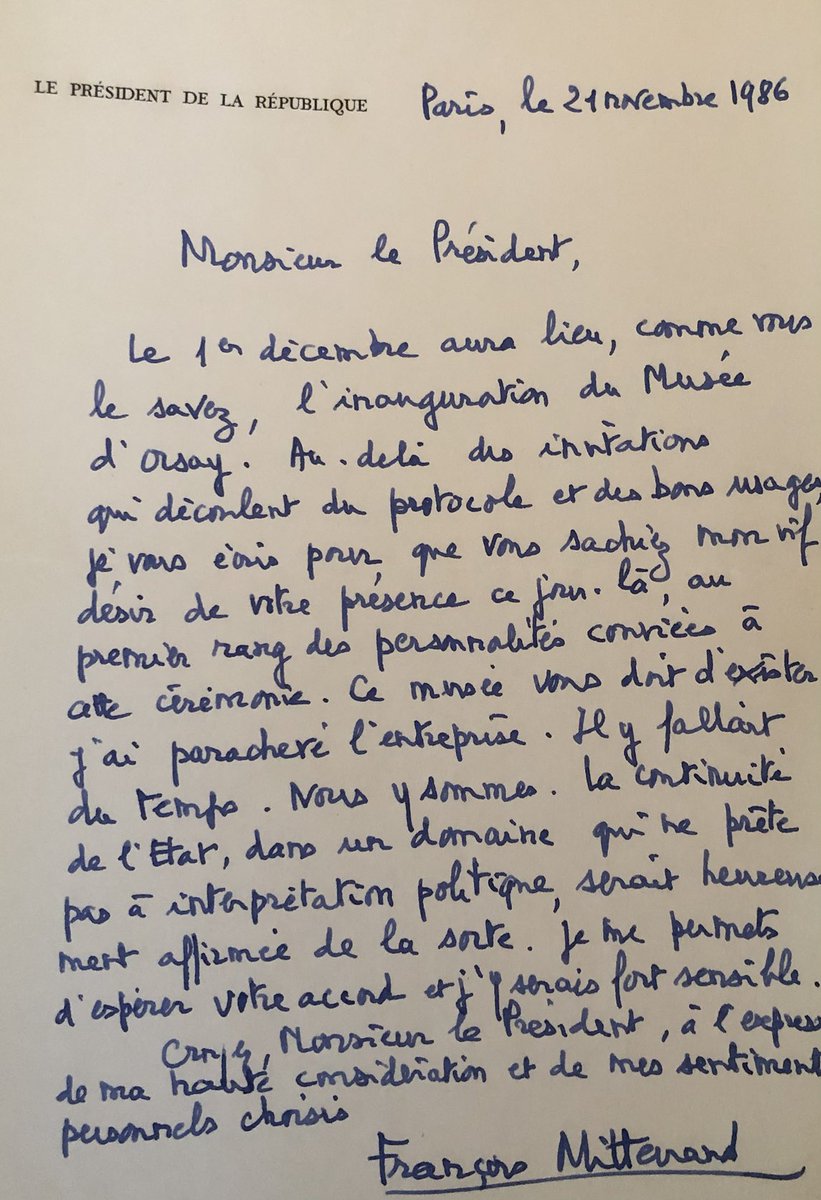 LE PRÉSIDENT DE LA RÉPUBLIQUE
Paris, le 21 novembre 1986
Monsieur le Président,
Le 1er décembre aura lieu, comme vous
le savez, l'inauguration du Musée
d'Orsay. Au-delà des invitations
qui découlent du protocole et des bons usages,
je vous écris pour que vous sachiez mon vif
désir de votre présence ce jour-là, au
premier rang des personnalités conviées à
cette cérémonie. Ce musée vous doit d'exister
j'ai parachevé l'entreprise. Il y fallait
du temps. Nous y sommes. La continuité
de l'Etat, dans un domaine qui ne prête
pas à interprétation politique, serait heureuse
ment affirmée de la sorte. Je me permets
d'espérer votre accord et j'y serais fort sensible.
Croyez, Monsieur le Président, à l'express
de ma haute considération et de mes sentiment
personnels choisis
François Mitterrand